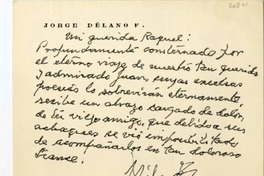 JORGE DÉLANO F.
Mi querida Raquel:
Profundamente consternado por
el eterno viaje de nuestro tan querido
y admirado Juan, cuyas excelsas
poesías lo sobrevivirán eternamente,
recibe un abrazo cargado de dolor,
de tu viejo amigo, que debido a sus
achaques se vió imposibilitado
de acompañarlos en tan doloroso
trance.